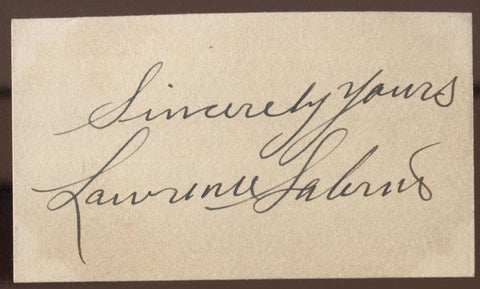 Sincerely yours
Lawrence Salerno